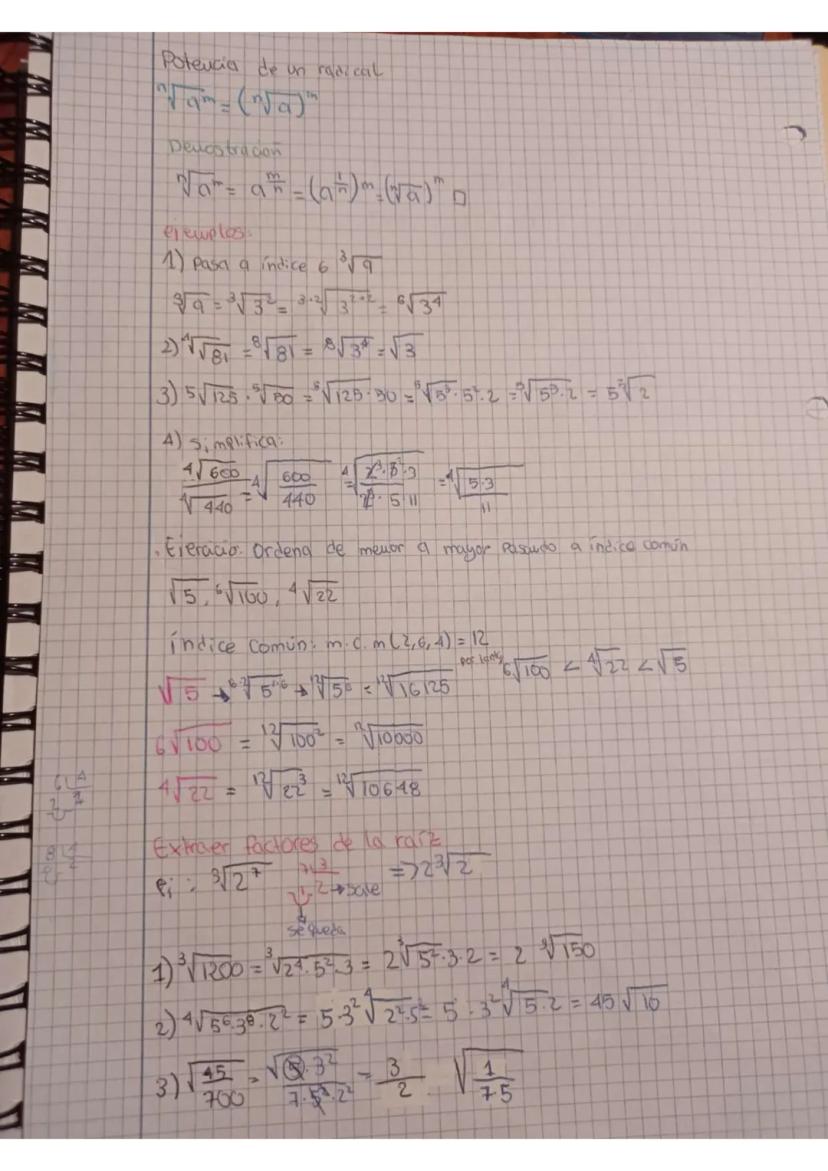 Potencia de un radical
ⁿ√aᵐ = (ⁿ√a)ᵐ
Demostración
ⁿ√aᵐ = a^(m/n) = (a^(1/n))ᵐ = (ⁿ√a)ᵐ □
ejemplos:
1) Pasa a índice 6 ³√9
³√9 = ³√3² = ³·²√3²·² = ⁶√3⁴
2) ⁴√√81 = ⁸√81 = ⁸√3⁴ = √3
3) ⁵√125 · ⁵√50 = ⁵√125·50 = ⁵√5³·5²·2 = ⁵√5⁵·2 = 5 ⁵√2
4) Simplifica:
⁴√600 / ⁴√440 = ⁴√(600/440) = ⁴√(2³·5²·3 / 2³·5·11) = ⁴√(5·3 / 11)
. Ejercicio. Ordena de menor a mayor pasando a índice común
√5, ⁶√100, ⁴√22
índice común: m.c.m (2,6,4) = 12
por tanto ⁶√100 < ⁴√22 < √5
√5 → ⁶·²√5¹·⁶ → ¹²√5⁶ = ¹²√16125
⁶√100 = ¹²√100² = ¹²√10000
⁴√22 = ¹²√22³ = ¹²√10648
Extraer factores de la raíz
ej: ³√2⁷ 7 3 => 2 ³√2
1 2 → sale
se queda
1) ³√1200 = ³√2⁴·5²·3 = 2 ³√5²·3·2 = 2 ³√150
2) ⁴√5⁶·3⁸·2² = 5·3² ⁴√2²·5² = 5·3² ⁴√5·2 = 45 √10
3) √(45/700) = √(5·3² / 7·5²·2²) = 3/2 √(1/7·5)